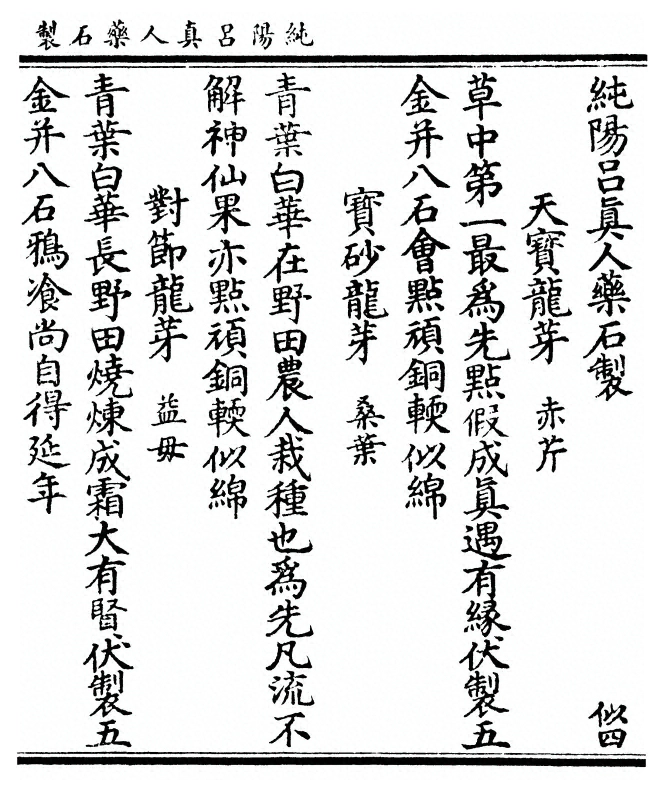 純陽呂真人藥石製
純陽呂眞人藥石製 似四
天寶龍芽 赤芹
草中第一最爲先點假成眞遇有緣伏製五
金并八石會點頑銅輭似綿
寶砂龍芽 桑葉
青葉白華在野田農人栽種也爲先凡流不
解神仙果亦點頑銅輭似綿
對節龍芽 益毋
青葉白華長野田燒煉成霜大有賢伏製五
金并八石鴉飡尚自得延年